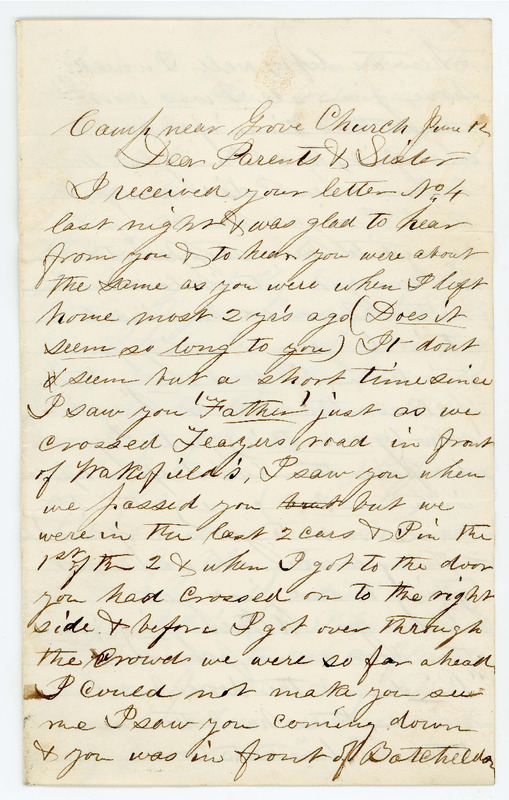 Camp near Grove Church June 12
Dear Parents & Sister
I received your letter No 4
last night & was glad to hear
from you & to hear you were about
the same as you were when I left
home most 2 yr's ago (Does it
seem so long to you) It dont
seem but a short time since
I saw you 'Father' just as we
crossed Teazers road in front
of Wakefield's, I saw you when
we passed you but but we
were in the last 2 cars & I in the
1st of the 2 & when I got to the door
you had crossed on to the right
side & before I got over through
the crowd we were so far ahead
I could not make you see
me I saw you coming down
& you was in front of